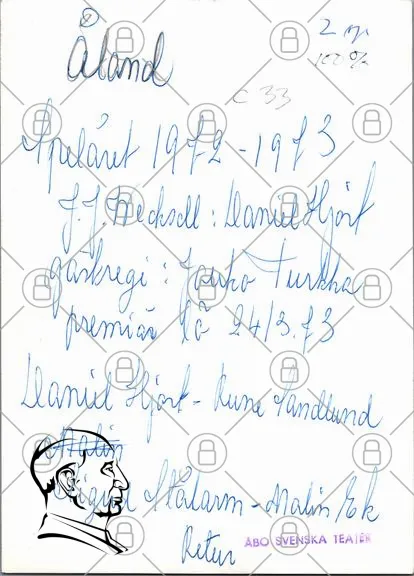 Åland
2 sp.
100%
C 33
Spelåret 1972-1973
J.J. Wecksell: Daniel Hjort
gästregi: Jouko Turkka
premiär lö 24/3.73
Daniel Hjort - Rune Sandlund
Malin
Sigrid Stålarm - Malin Ek
Retur
ÅBO SVENSKA TEATER